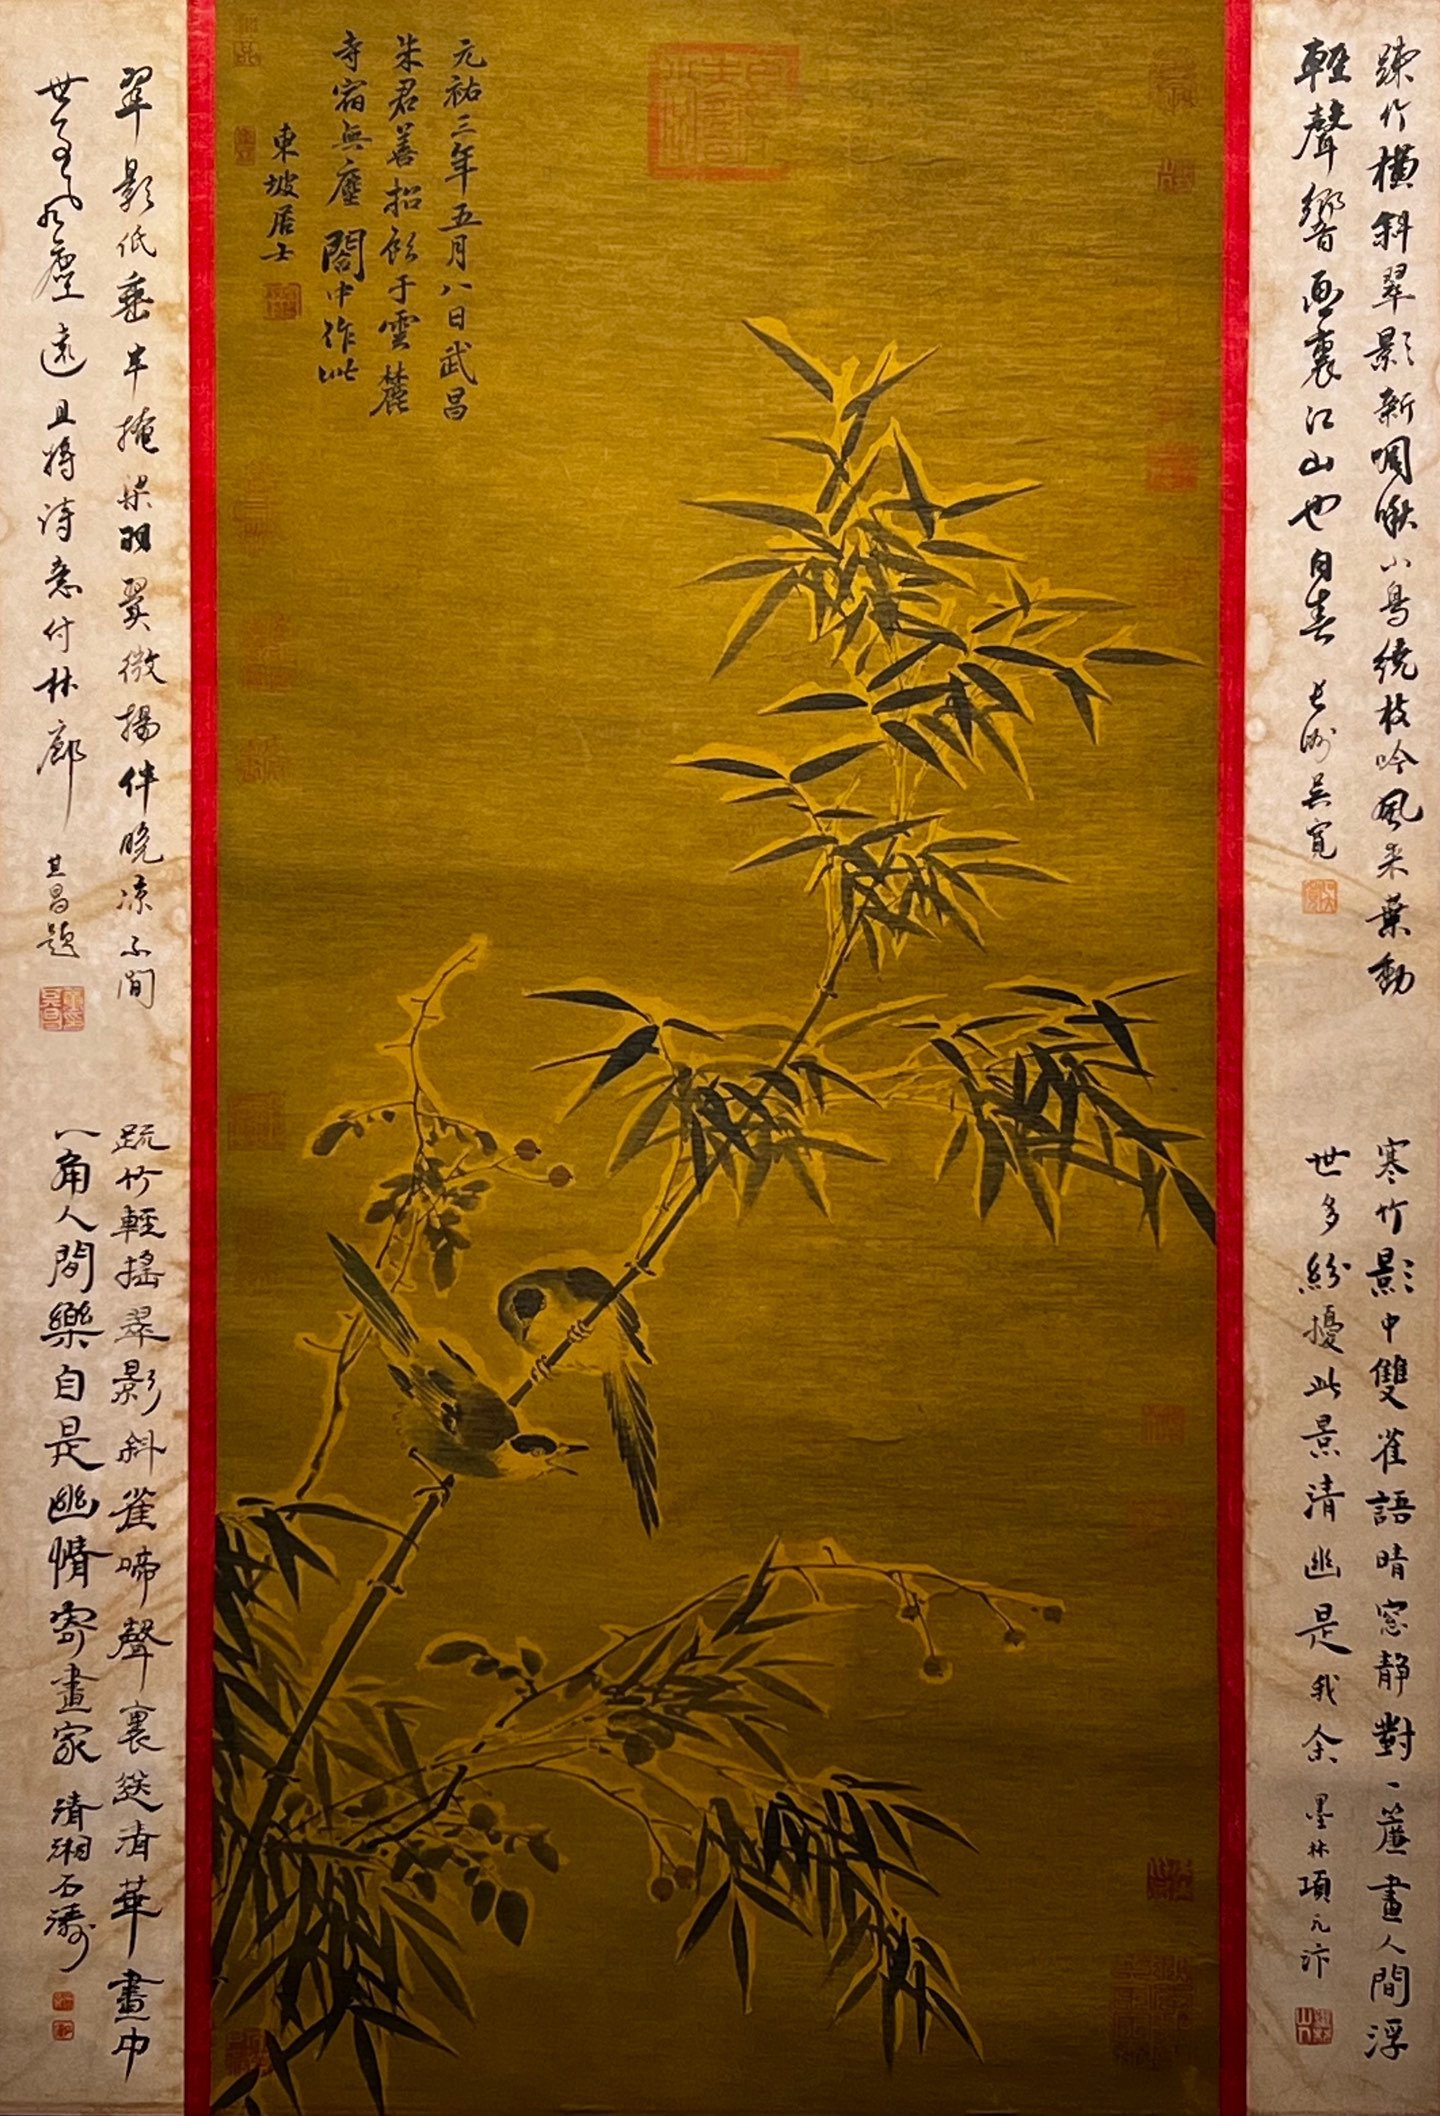 元祐三年五月八日武昌
朱君善招飲于雲麓
寺宿無塵閣中作此
東坡居士
疎竹橫斜翠影新啁啾小鳥繞枝吟風來葉動
輕聲響画裏江山也自春 長洲吳寬
寒竹影中雙雀語晴窓静對一簾畫人間浮
世多紛擾此景清幽是我余 墨林項元汴
翠影低垂半掩梁羽翼微揚伴晚凉不閒
世事風塵遠且將诗意付林廊 其昌题
疏竹輕摇翠影斜雀啼聲裏送清華畫中
一角人間樂自是幽情寄畫家 清湘石濤